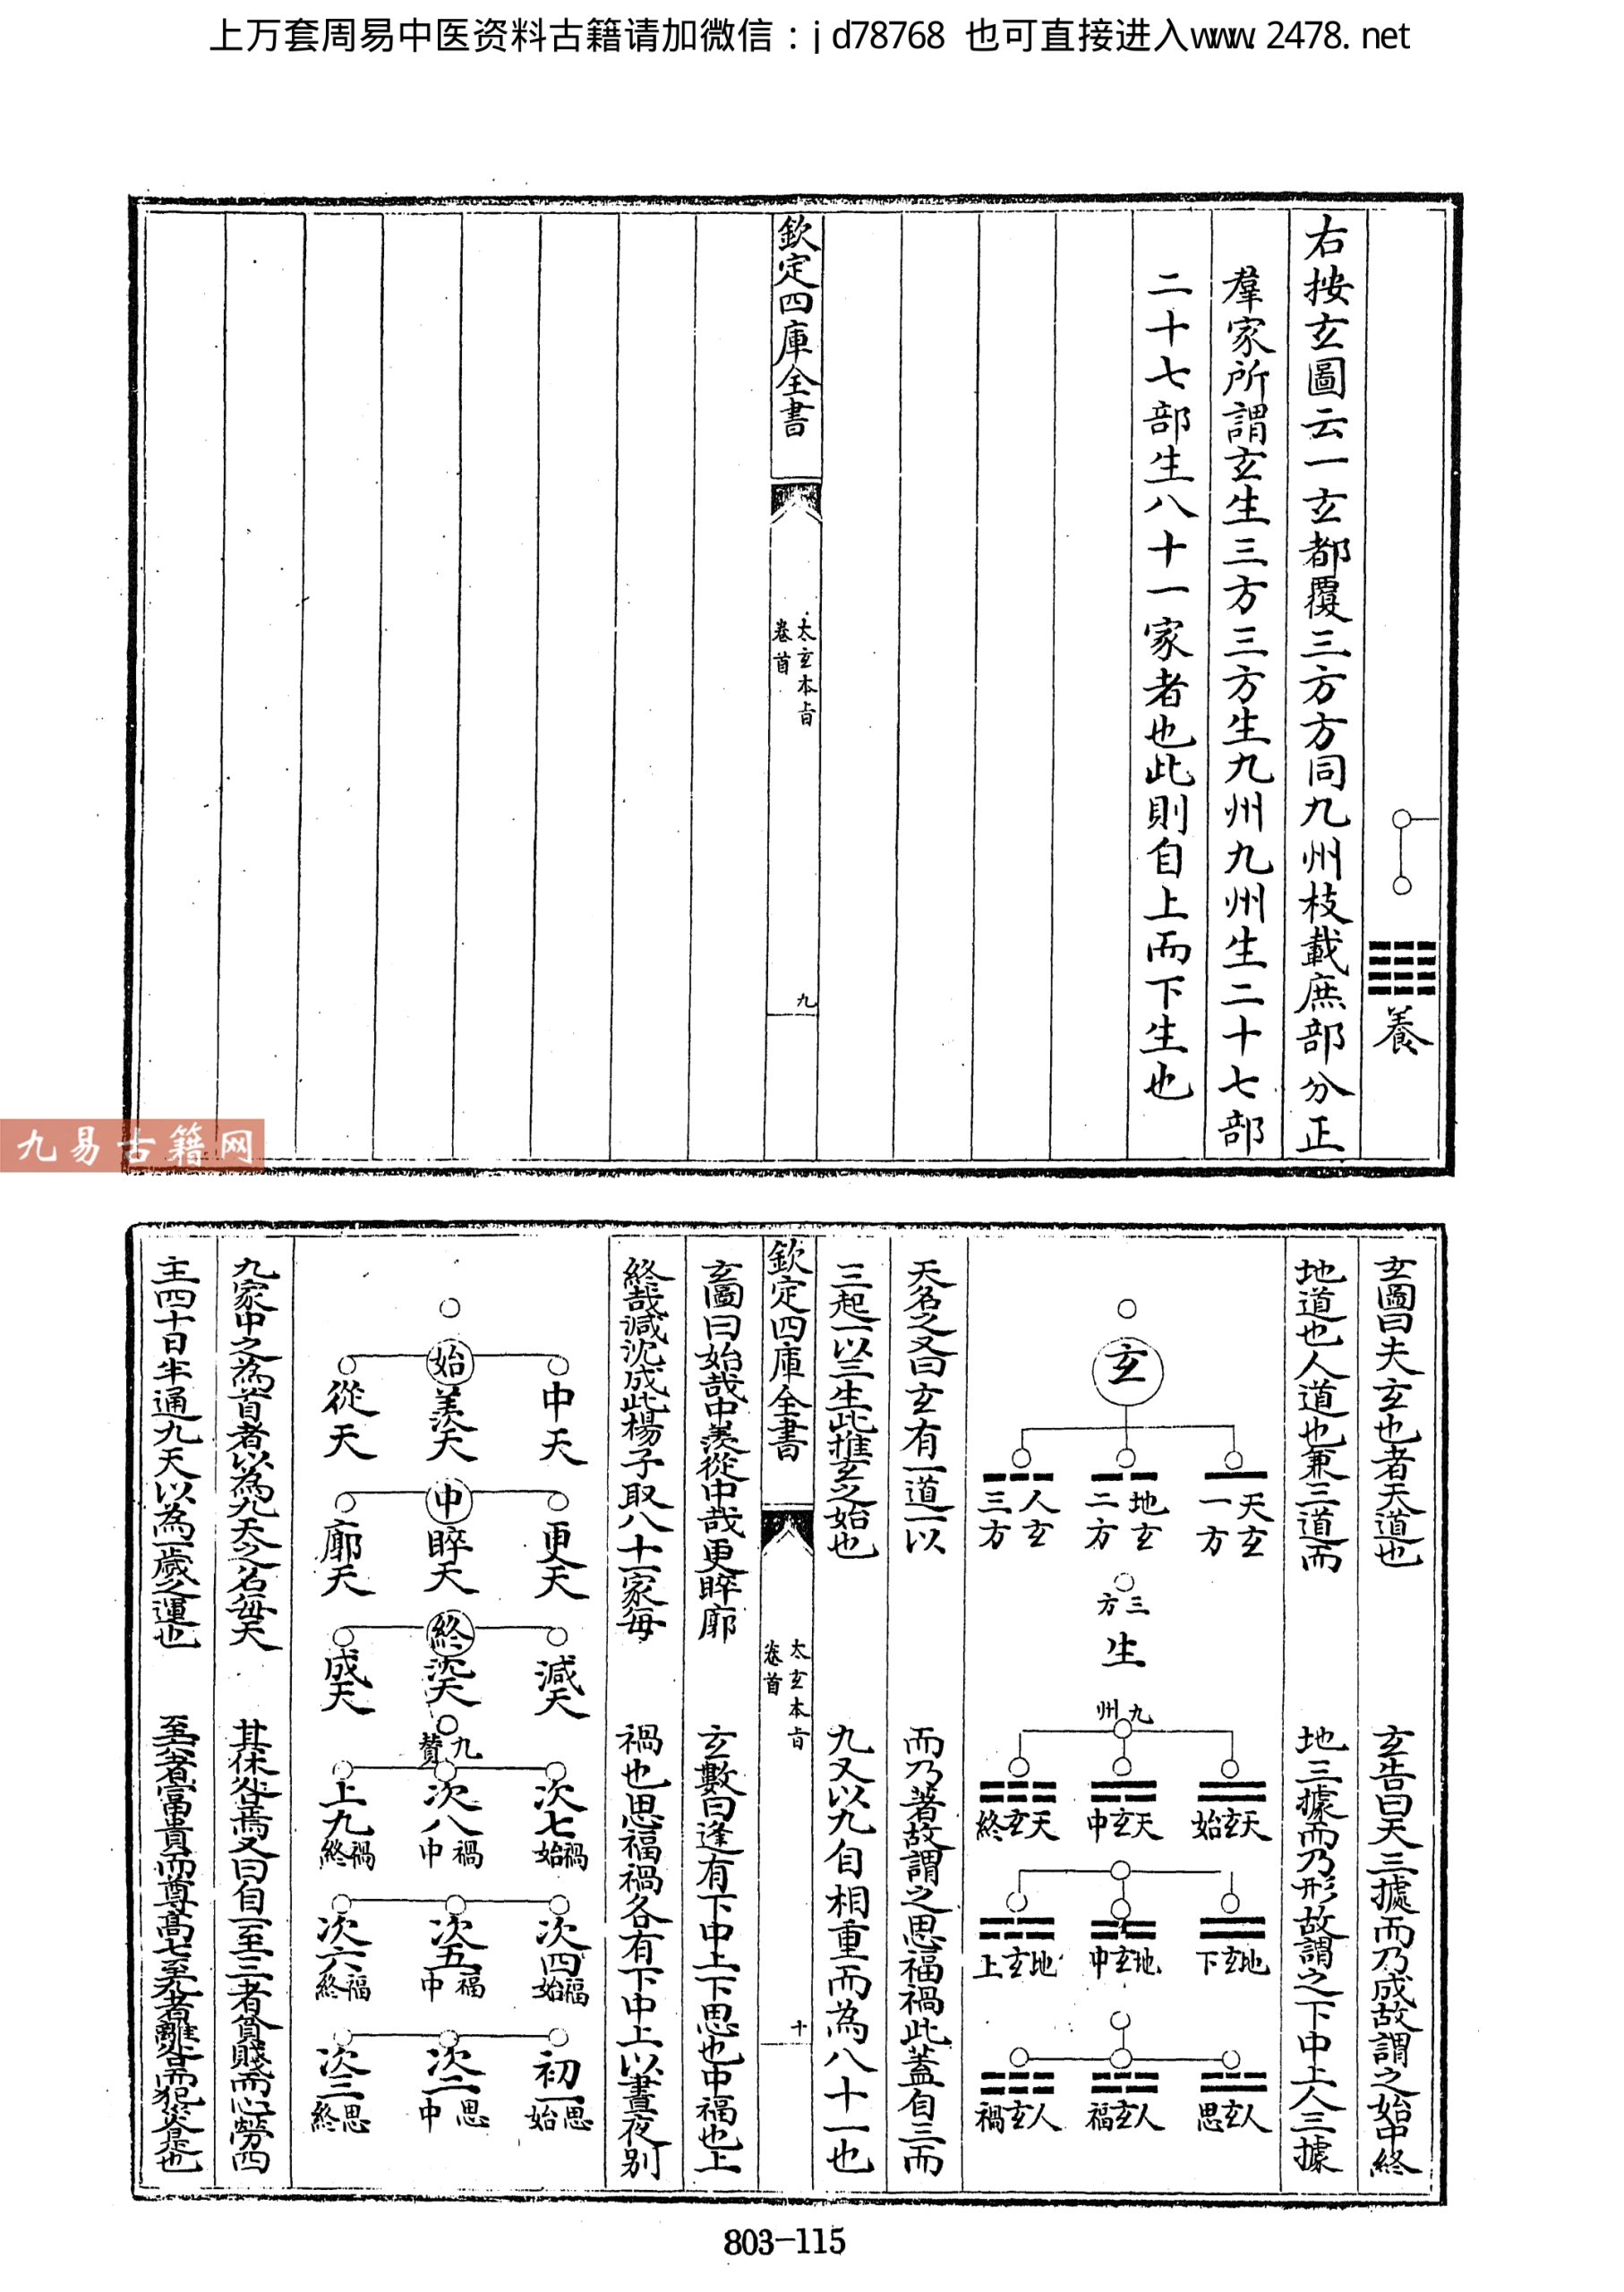 上万套周易中医资料古籍请加微信：jd78768 也可直接进入www.2478.net
養
右按玄圖云一玄都覆三方方同九州枝載庶部分正
羣家所謂玄生三方三方生九州九州生二十七部
二十七部生八十一家者也此則自上而下生也
欽定四庫全書
太玄本旨
卷首
九
九易古籍网
玄圖曰夫玄也者天道也
地道也人道也兼三道而
玄
天玄
一方
地玄
二方
人玄
三方
三方
生
九州
天名之又曰玄有一道一以
三起一以三生此推玄之始也
玄告曰天三據而乃成故謂之始中終
地三據而乃形故謂之下中上人三據
天玄始
天玄中
天玄終
地玄下
地玄中
地玄上
人玄思
人玄福
人玄禍
而乃著故謂之思福禍此蓋自三而
九又以九自相重而為八十一也
欽定四庫全書
太玄本旨
卷首
十
玄圖曰始哉中羨從中哉更睟廓
終哉減沈成此楊子取八十一家每
始
中天
羨天
從天
中
更天
睟天
廓天
終
減天
沈天
成天
九家中之為首者以為九天之名每天
主四十日半通九天以為一歲之運也
玄數曰逢有下中上下思也中福也上
禍也思福禍各有下中上以晝夜别
九贊
次七 禍始
次八 禍中
上九 禍終
次四 福始
次五 福中
次六 福終
初一 思始
次二 思中
次三 思終
其休咎焉又曰自一至三者貧賤而心勞四
至六者富貴而尊高七至九者離咎而犯菑是也
803-115